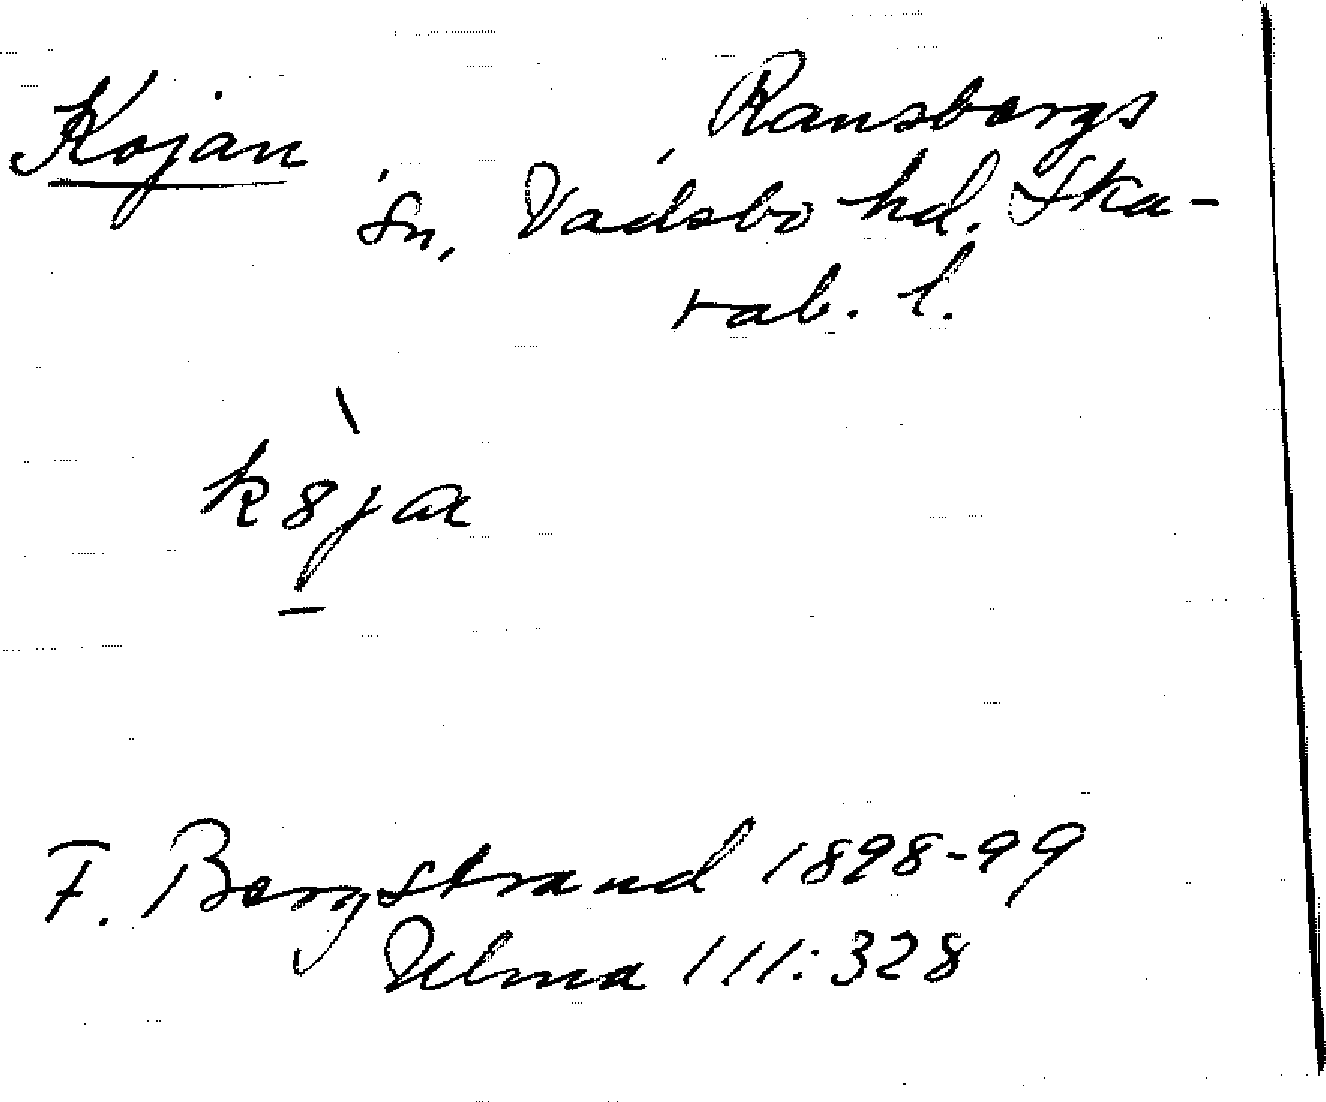 Kojan Ransbergs
Sn, Vadsbo hd. Ska-
rab. l.
k8ja
F. Bergstrand 1898-99
Ulma 111:328